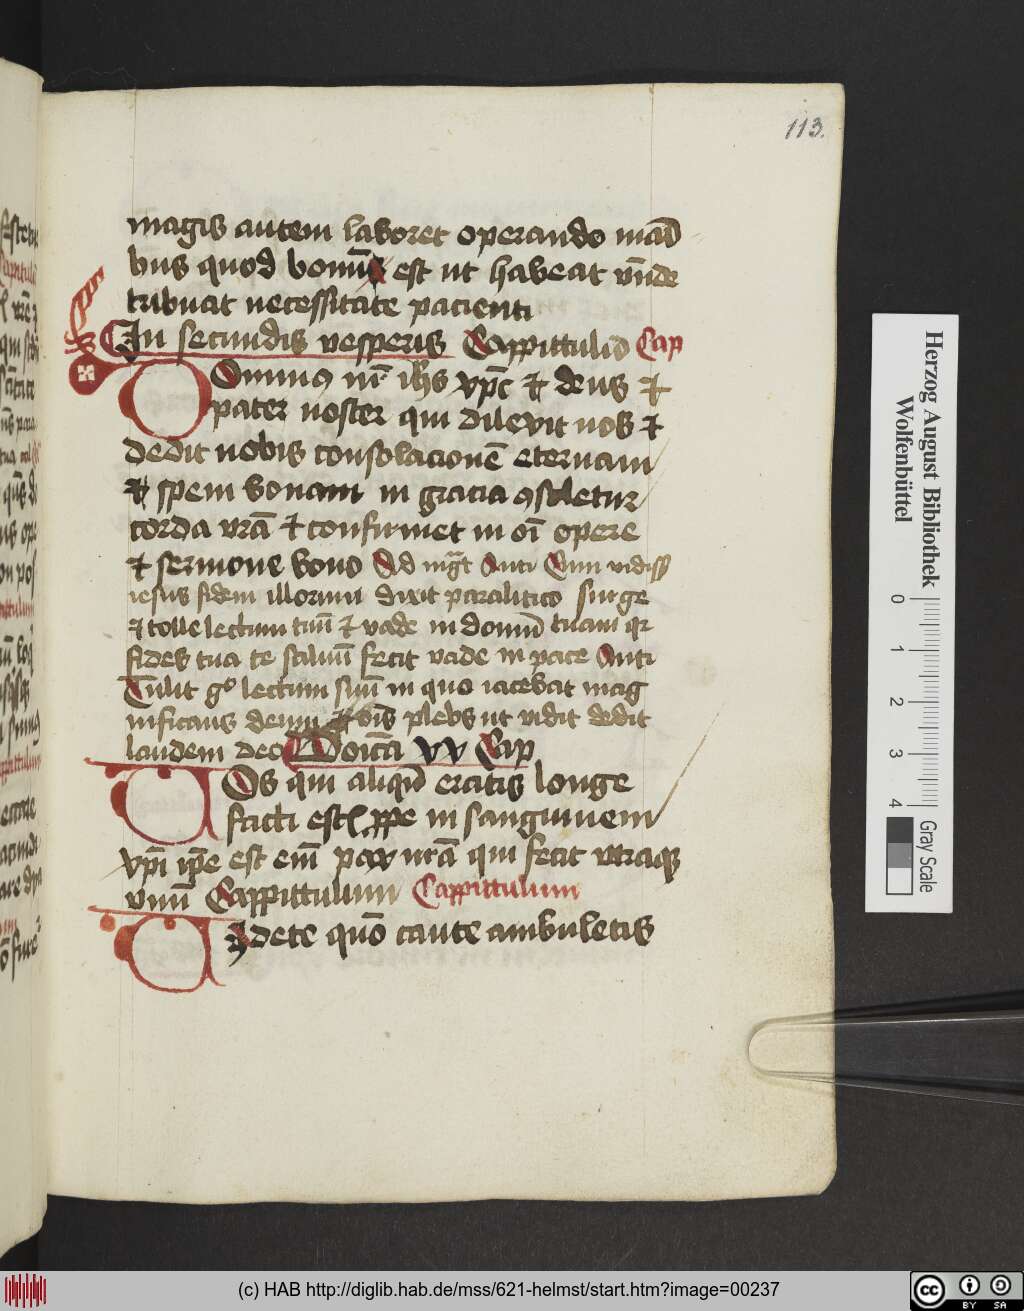 113.
magis autem laboret operando maĩ
bus quod bonũ est ut habeat vñde
tribuat necessitatẽ pacienti
In secundis vesperis Cappittulũ Cap
Ominus nr̃ ihs xp̃c et deus et
pater noster qui dilexit nos et
dedit nobis consolacionẽ eternam
et spem bonam in gracia ꝯsoletur
corda vrã et confirmet in oĩ opere
et sermone bono Ad mg̃t Anti Cum vidiss
iesus fidem illorum dixit paralitico surge
et tolle lectum tuũ et vade in domũ tuam qr
fides tua te saluũ fecit vade in pace Anti
Tulit gͦ lectum suũ in quo iacebat mag
nificans deum et oĩs plebs ut vidit dedit
laudem deo Doĩca xx Cap
Os qui aliqñ eratis longe
facti estꝭ ꝓpe in sanguinem
xp̃i ip̃e est eĩm pax nrã qui fecit utraqꝫ
vnũ Cappittulum Cappittulum
Idete quõ caute ambuletis
Herzog August Bibliothek
Wolfenbüttel
0 1 2 3 4 Gray Scale
(c) HAB http://diglib.hab.de/mss/621-helmst/start.htm?image=00237
cc BY SA